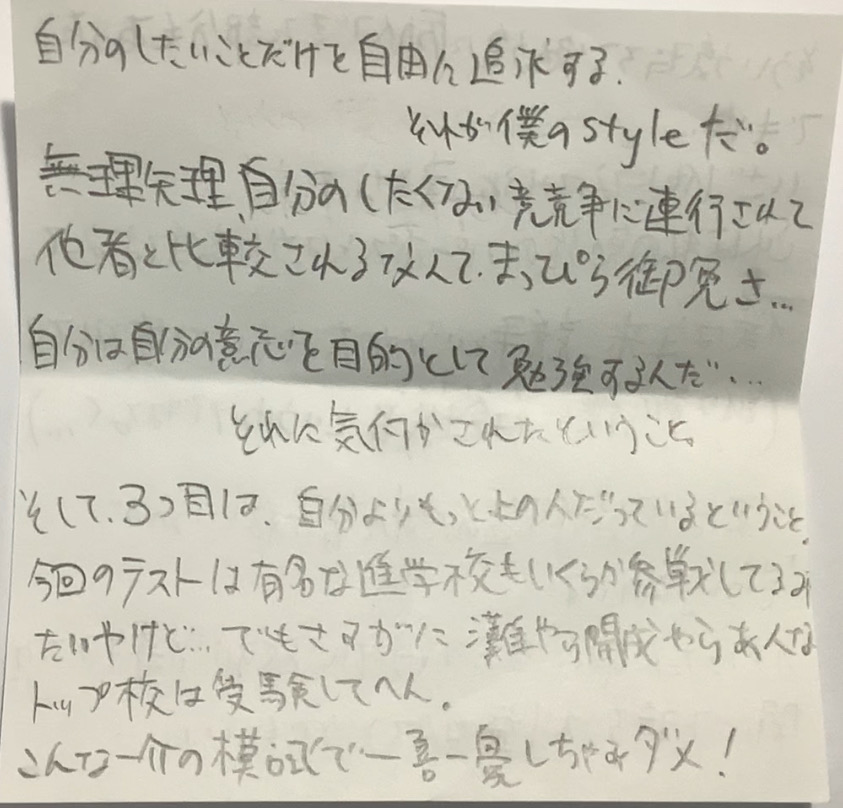 自分のしたいことだけを自由に追求する.
それが僕のstyleだ。
無理矢理、自分のしたくない競争に連行されて
他者と比較されるなんて、まっぴら御免さ…
自分は自分の意志を目的として勉強するんだ…
それに気付かされたということ。
そして、3つ目は、自分よりもっと上の人だっているということ。
今回のテストは有名な進学校もいくらか参戦してるみ
たいやけど… でもさすがに灘やら開成やらあんな
トップ校は受験してへん。
こんな一介の模試で一喜一憂しちゃみダメ!